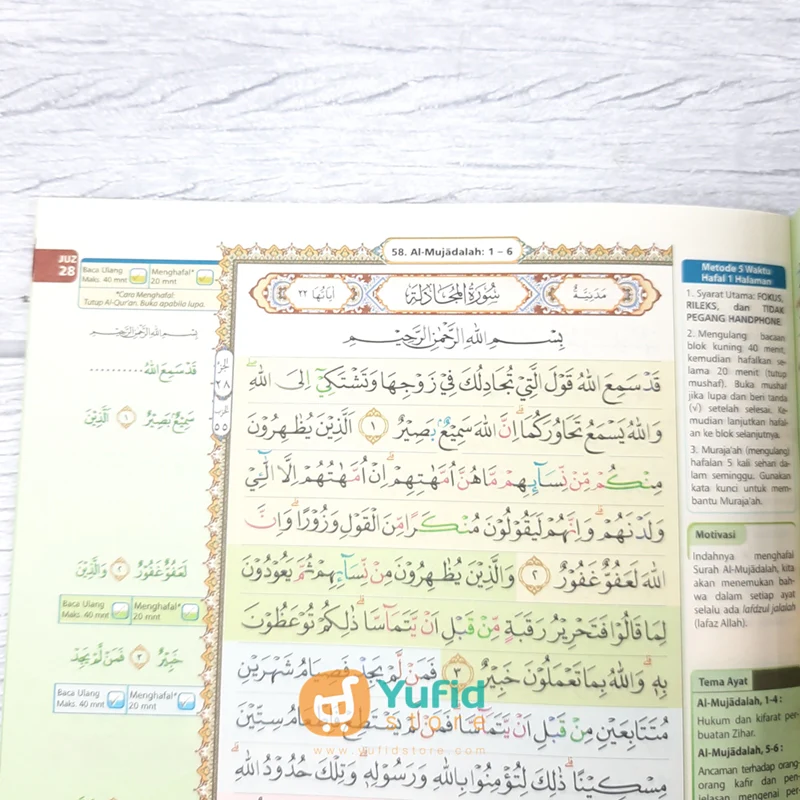 58. Al-Mujādalah: 1 – 6
JUZ
28
Baca Ulang
Maks. 40 mnt
Menghafal*
20 mnt
*Cara Menghafal:
Tutup Al-Qur'an. Buka apabila lupa.
بِسْمِ اللهِ الرَّحْمٰنِ الرَّحِيْمِ
قَدْ سَمِعَ اللهُ ..........
سَمِيْعٌۢ بَصِيْرٌ ١ اَلَّذِيْنَ
لَعَفُوٌّ غَفُوْرٌ ٢ وَالَّذِيْنَ
Baca Ulang
Maks. 40 mnt
Menghafal*
20 mnt
خَبِيْرٌ ٣ فَمَنْ لَّمْ يَجِدْ
Baca Ulang
Maks. 40 mnt
Menghafal*
20 mnt
الجزء
٢٨
الحزب
٥٥
مَدَنِيَّةٌ
سُوْرَةُ الْمُجَادلَة
اٰيَاتُهَا ٢٢
بِسْمِ اللهِ الرَّحْمٰنِ الرَّحِيْمِ
قَدْ سَمِعَ اللهُ قَوْلَ الَّتِيْ تُجَادِلُكَ فِيْ زَوْجِهَا وَتَشْتَكِيْٓ اِلَى اللهِ ۖ
وَاللهُ يَسْمَعُ تَحَاوُرَكُمَا ۗ اِنَّ اللهَ سَمِيْعٌۢ بَصِيْرٌ ١ اَلَّذِيْنَ يُظٰهِرُوْنَ
مِنْكُمْ مِّنْ نِّسَاۤىِٕهِمْ مَّا هُنَّ اُمَّهٰتِهِمْ ۗ اِنْ اُمَّهٰتُهُمْ اِلَّا الّٰۤـِٔيْ
وَلَدْنَهُمْ ۗ وَاِنَّهُمْ لَيَقُوْلُوْنَ مُنْكَرًا مِّنَ الْقَوْلِ وَزُوْرًا ۗ وَاِنَّ
اللهَ لَعَفُوٌّ غَفُوْرٌ ٢ وَالَّذِيْنَ يُظٰهِرُوْنَ مِنْ نِّسَاۤىِٕهِمْ ثُمَّ يَعُوْدُوْنَ
لِمَا قَالُوْا فَتَحْرِيْرُ رَقَبَةٍ مِّنْ قَبْلِ اَنْ يَّتَمَاۤسَّا ۗ ذٰلِكُمْ تُوْعَظُوْنَ
بِهٖ ۗ وَاللهُ بِمَا تَعْمَلُوْنَ خَبِيْرٌ ٣ فَمَنْ لَّمْ يَجِدْ فَصِيَامُ شَهْرَيْنِ
مُتَتَابِعَيْنِ مِنْ قَبْلِ اَنْ يَّتَمَاۤسَّا ۗ فَمَنْ لَّمْ يَسْتَطِعْ فَاِطْعَامُ سِتِّيْنَ
مِسْكِيْنًا ۗ ذٰلِكَ لِتُؤْمِنُوْا بِاللهِ وَرَسُوْلِهٖ ۗ وَتِلْكَ حُدُوْدُ اللهِ ۗ
Metode 5 Waktu
Hafal 1 Halaman
1. Syarat Utama: FOKUS,
RILEKS, dan TIDAK
PEGANG HANDPHONE.
2. Mengulang bacaan
blok kuning 40 menit,
kemudian hafalkan se-
lama 20 menit (tutup
mushaf). Buka mushaf
jika lupa dan beri tanda
(√) setelah selesai. Ke-
mudian lanjutkan hafal-
an ke blok selanjutnya.
3. Muraja'ah (mengulang)
hafalan 5 kali sehari da-
lam seminggu. Gunakan
kata kunci untuk mem-
bantu Muraja'ah.
Motivasi
Indahnya menghafal
Surah Al-Mujādalah, kita
akan menemukan bah-
wa dalam setiap ayat
selalu ada lafdzul jalalah
(lafaz Allah).
Tema Ayat
Al-Mujādalah, 1-4 :
Hukum dan kifarat per-
buatan Zihar.
Al-Mujādalah, 5-6 :
Ancaman terhadap orang-
orang kafir dan pen-
jelasan mengenai per-
Yufid
store
www.yufidstore.com